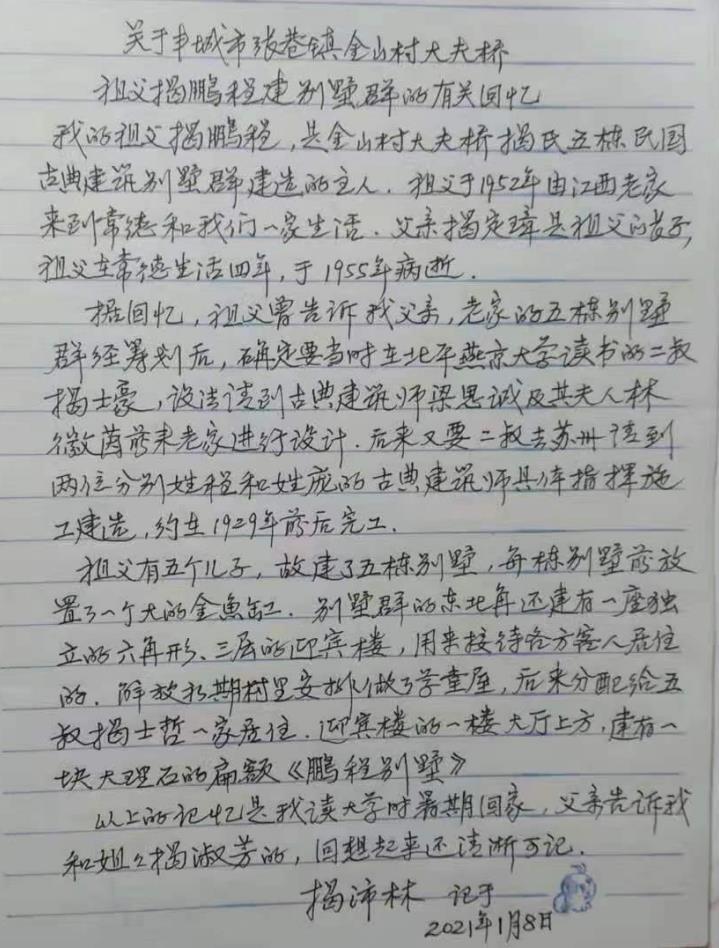 关于丰城市张巷镇金山村大夫桥
祖父揭鹏程建别墅群的有关回忆
我的祖父揭鹏程，是金山村大夫桥揭氏五栋民国
古典建筑别墅群建造的主人．祖父于1952年由江西老家
来到常德和我们一家生活．父亲揭定璋是祖父的长子，
祖父在常德生活四年，于1955年病逝．
据回忆，祖父曾告诉我父亲，老家的五栋别墅
群经筹划后，确定要当时在北平燕京大学读书的二叔
揭士豪，设法请到古典建筑师梁思诚及其夫人林
徽茵前来老家进行设计．后来又要二叔去苏州请到
两位分别姓程和姓庞的古典建筑师具体指挥施
工建造，约在1929年前后完工．
祖父有五个儿子，故建了五栋别墅，每栋别墅前放
置了一个大的金鱼缸．别墅群的东北角还建有一座独
立的六角形、三层的迎宾楼，用来接待各方客人居住
的．解放初期村里安排做了学堂屋，后来分配给五
叔揭士哲一家居住．迎宾楼的一楼大厅上方，建有一
块大理石的扁额《鹏程别墅》
以上的记忆是我读大学时暑期回家，父亲告诉我
和姐々揭淑芳的，回想起来还清淅可记．
揭沛林 记于
2021年1月8日